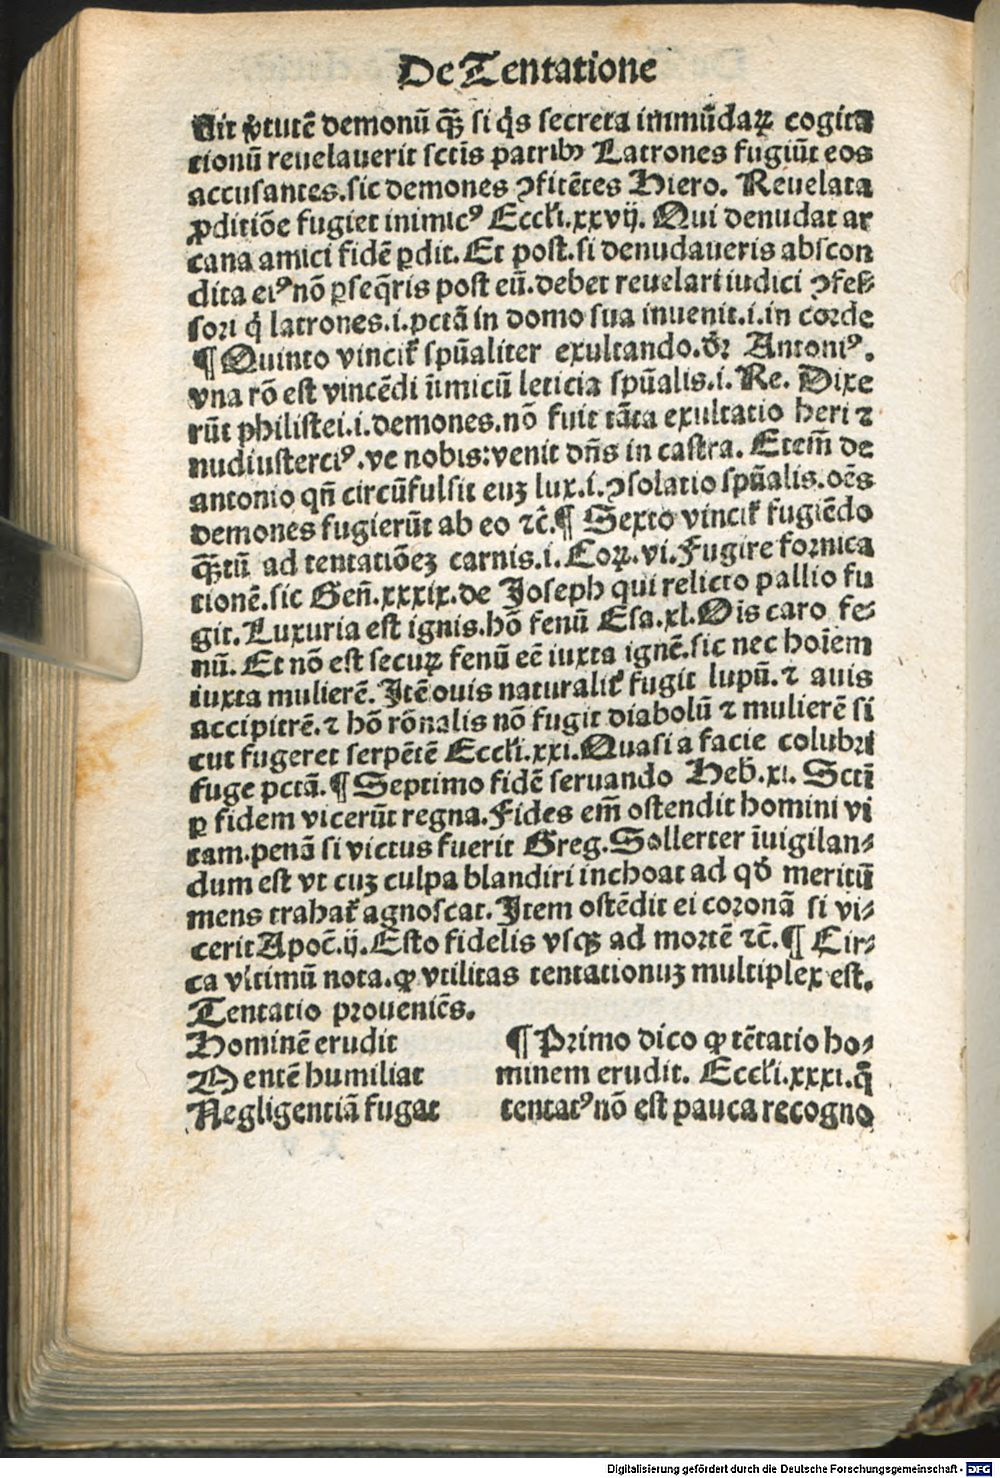 De Tentatione
uit v̾tutē demonū qꝫ si q̇s secreta immūdaꝝ cogita
tionū reuelauerit sctīs patribꝰ Latrones fugiūt eos
accusantes.sic demones ꝯfitētes Hiero. Reuelata
ꝓditiōe fugiet inimicꝰ Eccłi.xxvij. Qui denudat ar
cana amici fidē ꝑdit. Et post.si denudaueris abscon
dita eiꝰ nō ꝑseq̄ris post eū.debet reuelari iudici ꝯfes⸗
sori q̇ latrones.i.pctā in domo sua inuenit.i.in corde
¶ Quinto vincit᷑ spūaliter exultando.vn̄ Antoniꝰ.
vna rō est vincēdi īimicū leticia spūalis.i. Re. Dixe
rūt philistei.i.demones.nō fuit tāta exultatio heri ⁊
nudiusterciꝰ.ve nobis:venit dn̄s in castra. Etem̄ de
antonio qn̄ circūfulsit euꝫ lux.i.ꝯsolatio spūalis.oēs
demones fugierūt ab eo ⁊c̄.¶ Sexto vincit᷑ fugiēdo
qꝫtū ad tentatiōeꝫ carnis.i.Coꝝ.vi.Fugite fornica
tionē.sic Gen̄.xxxix.de Joseph qui relicto pallio fu
git.Luxuria est ignis.hō fenū Esa.xl.Ois caro fe⸗
nū. Et nō est secuꝝ fenū eē iuxta ignē.sic nec hoīem
iuxta mulierē. Jtē ouis naturalit᷑ fugit lupū.⁊ auis
accipitrē.⁊ hō rōnalis nō fugit diabolū ⁊ mulierē si
cut fugeret serpētē Eccłi.xxi.Quasi a facie colubri
fuge pctā.¶ Septimo fidē seruando Heb̄.xi. Sctī
ꝑ fidem vicerūt regna.Fides em̄ ostendit homini vi
tam.penā si victus fuerit Greg.Sollerter īuigilan⸗
dum est vt cuꝫ culpa blandiri inchoat ad qd̓ meritū
mens trahat᷑ agnoscat. Jtem ostēdit ei coronā si vi⸗
cerit Apoc̄.ij.Esto fidelis vsqꝫ ad mortē ⁊c̄.¶ Cir⸗
ca vltimū nota.ꝙ vtilitas tentationuꝫ multiplex est.
Tentatio proueniēs.
Hominē erudit
Mentē humiliat
Negligentiā fugat
¶ Primo dico ꝙ tētatio ho⸗
minem erudit. Eccłi.xxxi.q̄
tentatꝰ nō est pauca recogno
Digitalisierung gefördert durch die Deutsche Forschungsgemeinschaft - DFG